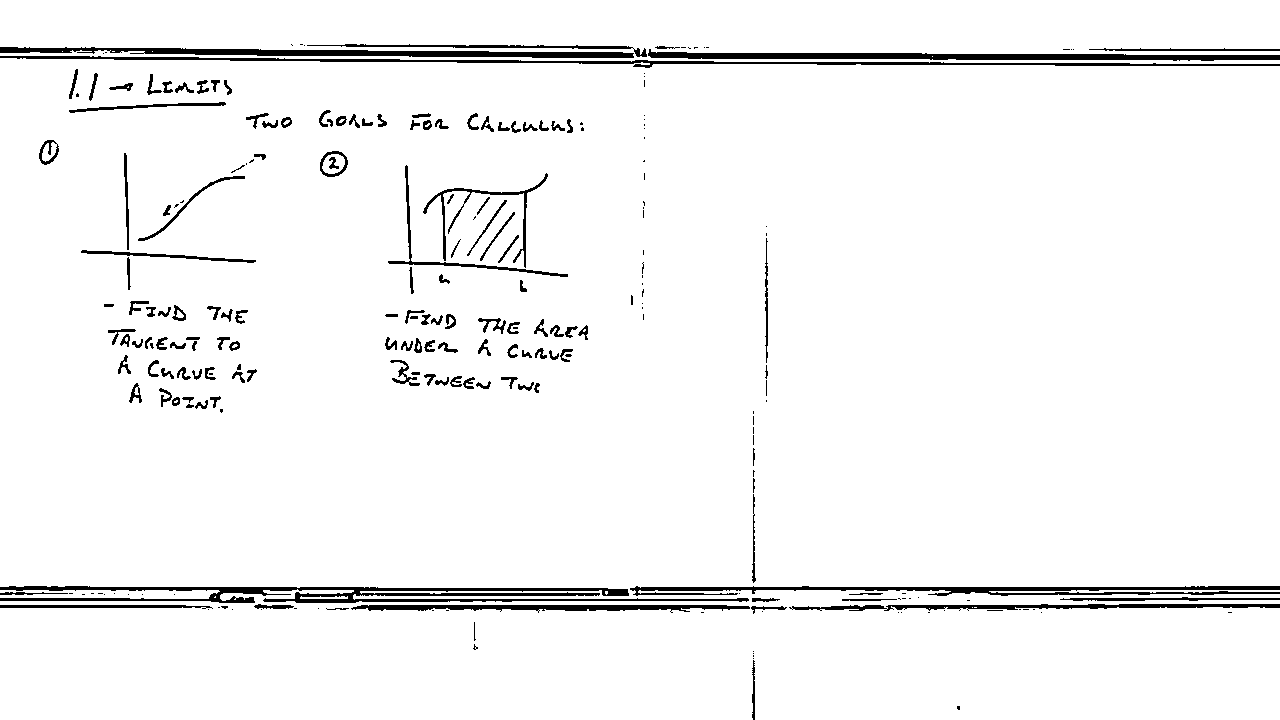 1.1 → LIMITS
TWO GOALS FOR CALCULUS:
①
②
a b
- FIND THE
TANGENT TO
A CURVE AT
A POINT.
- FIND THE AREA
UNDER A CURVE
BETWEEN